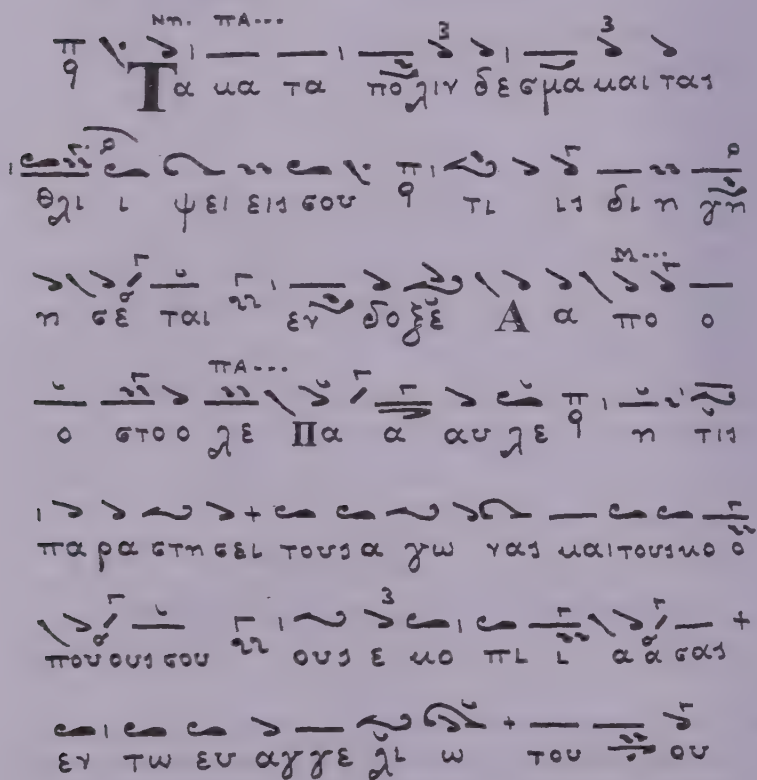 Νη. πΑ...
Τα κα τα πο λιν δε σμα και τας
θλι ι ψει εις σου τι ις δι η γη
η σε ται εν δο ξε Α α πο ο
Μ...
ο στο ο λε Πα α αυ λε η τις
πΑ...
πα ρα στη σει τους α γω νας και τους κο ο
που ους σου ους ε κο πι ι α α σας
εν τω ευ αγ γε λι ω του ου